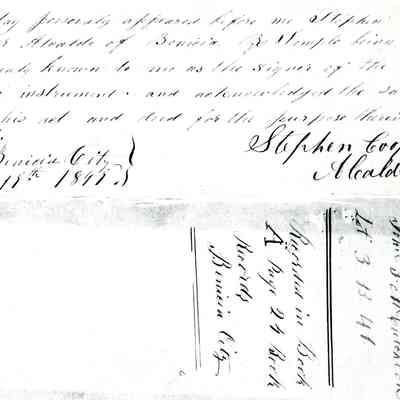 day personally appeared before me Stephen
Alcalde of Benicia Semple being
known to me as the signer of the
instrument and acknowledged the sa
his act and deed for the purpose therein
Benicia City }
Stephen Coo
Alcald
Recorded in Book
A Page 24 Book
Records
Benicia City
Lt 3 B 41